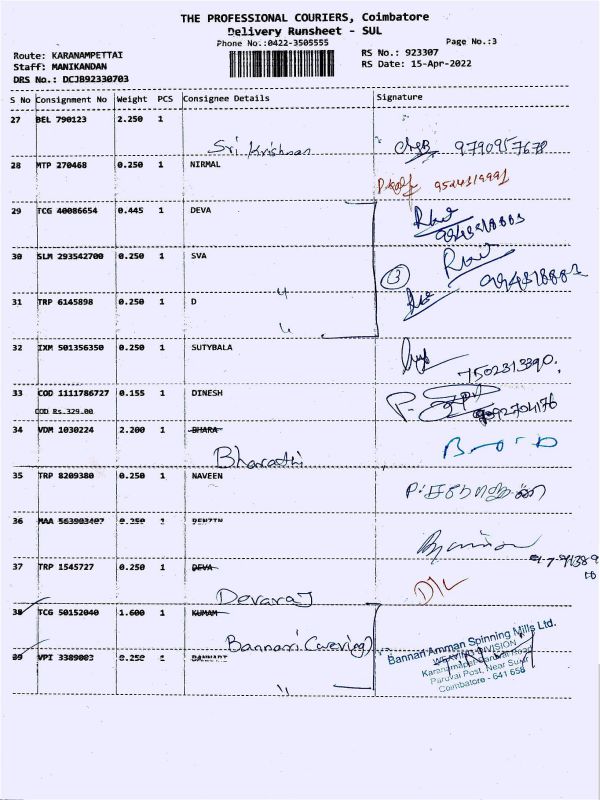 THE PROFESSIONAL COURIERS, Coimbatore
Delivery Runsheet - SUL
Phone No.:0422-3505555
Page No.:3
Route: KARANAMPETTAI
RS No.: 923307
Staff: MANIKANDAN
RS Date: 15-Apr-2022
DRS No.: DCJB92330703
S No Consignment No Weight PCS Consignee Details Signature
27 BEL 790123 2.250 1
Sri Krishnan 9790957678
28 MTP 270468 0.250 1 NIRMAL
9524319991
29 TCG 40086654 0.445 1 DEVA
30 SLM 293542700 0.250 1 SVA
3
31 TRP 6145898 0.250 1 D
32 IXM 501356350 0.250 1 SUTYBALA
7502313390
33 COD 1111786727 0.155 1 DINESH
COD Rs.329.00
9092704176
34 VDM 1030224 2.200 1 BHARA
Bharathi
35 TRP 8209380 0.250 1 NAVEEN
36 MAA 563903407 0.250 1
37 TRP 1545727 0.250 1 DEVA
D/L
Devaraj
38 TCG 50152040 1.600 1 KUMAM
Bannari (weving)
39 VPI 3389003 0.250 BANNARI
Bannari Amman Spinning Mills Ltd.
WEAVING DIVISION
Paruvai Post, Near Sulur
Coimbatore - 641 658